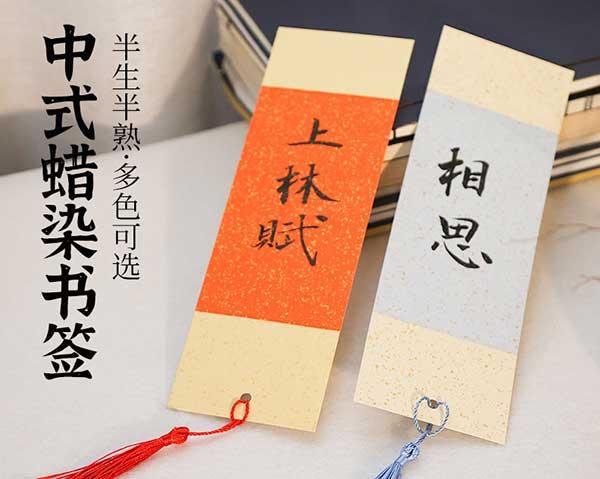 中式蜡染书签
半生半熟·多色可选
上林赋
相思